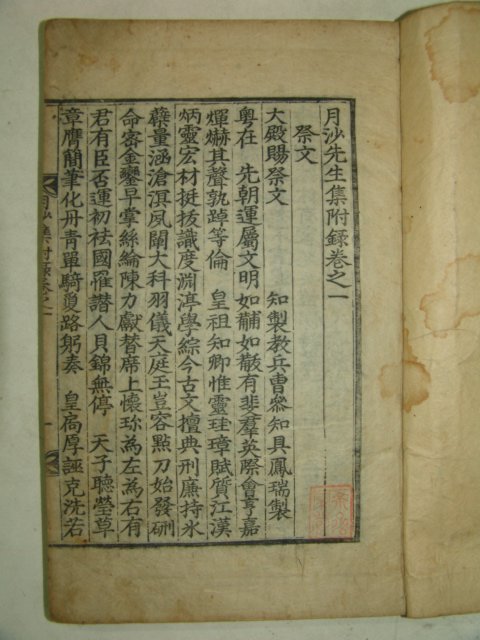 月沙先生集附錄卷之一
祭文
大殿賜祭文 知製教兵曹參知具鳳瑞製
粤在 先朝運屬文明如黼如黻有斐羣英際會亨嘉
燀爀其聲孰踔等倫 皇祖知卿惟靈珪璋賦質江漢
炳靈宏材挺拔識度淵渟學綜今古文擅典刑廉持氷
蘗量涵滄溟夙闡大科羽儀天庭王豈容點刀始發硎
命審金鑾早掌絲綸陳力獻替席上懷珎為左為右有
君有臣否運初袪國罹譖人貝錦無停 天子聽瑩草
章膺簡筆化丹青單騎夐路躬奏 皇扄厚誣克洗若
月沙集附錄卷之一
一